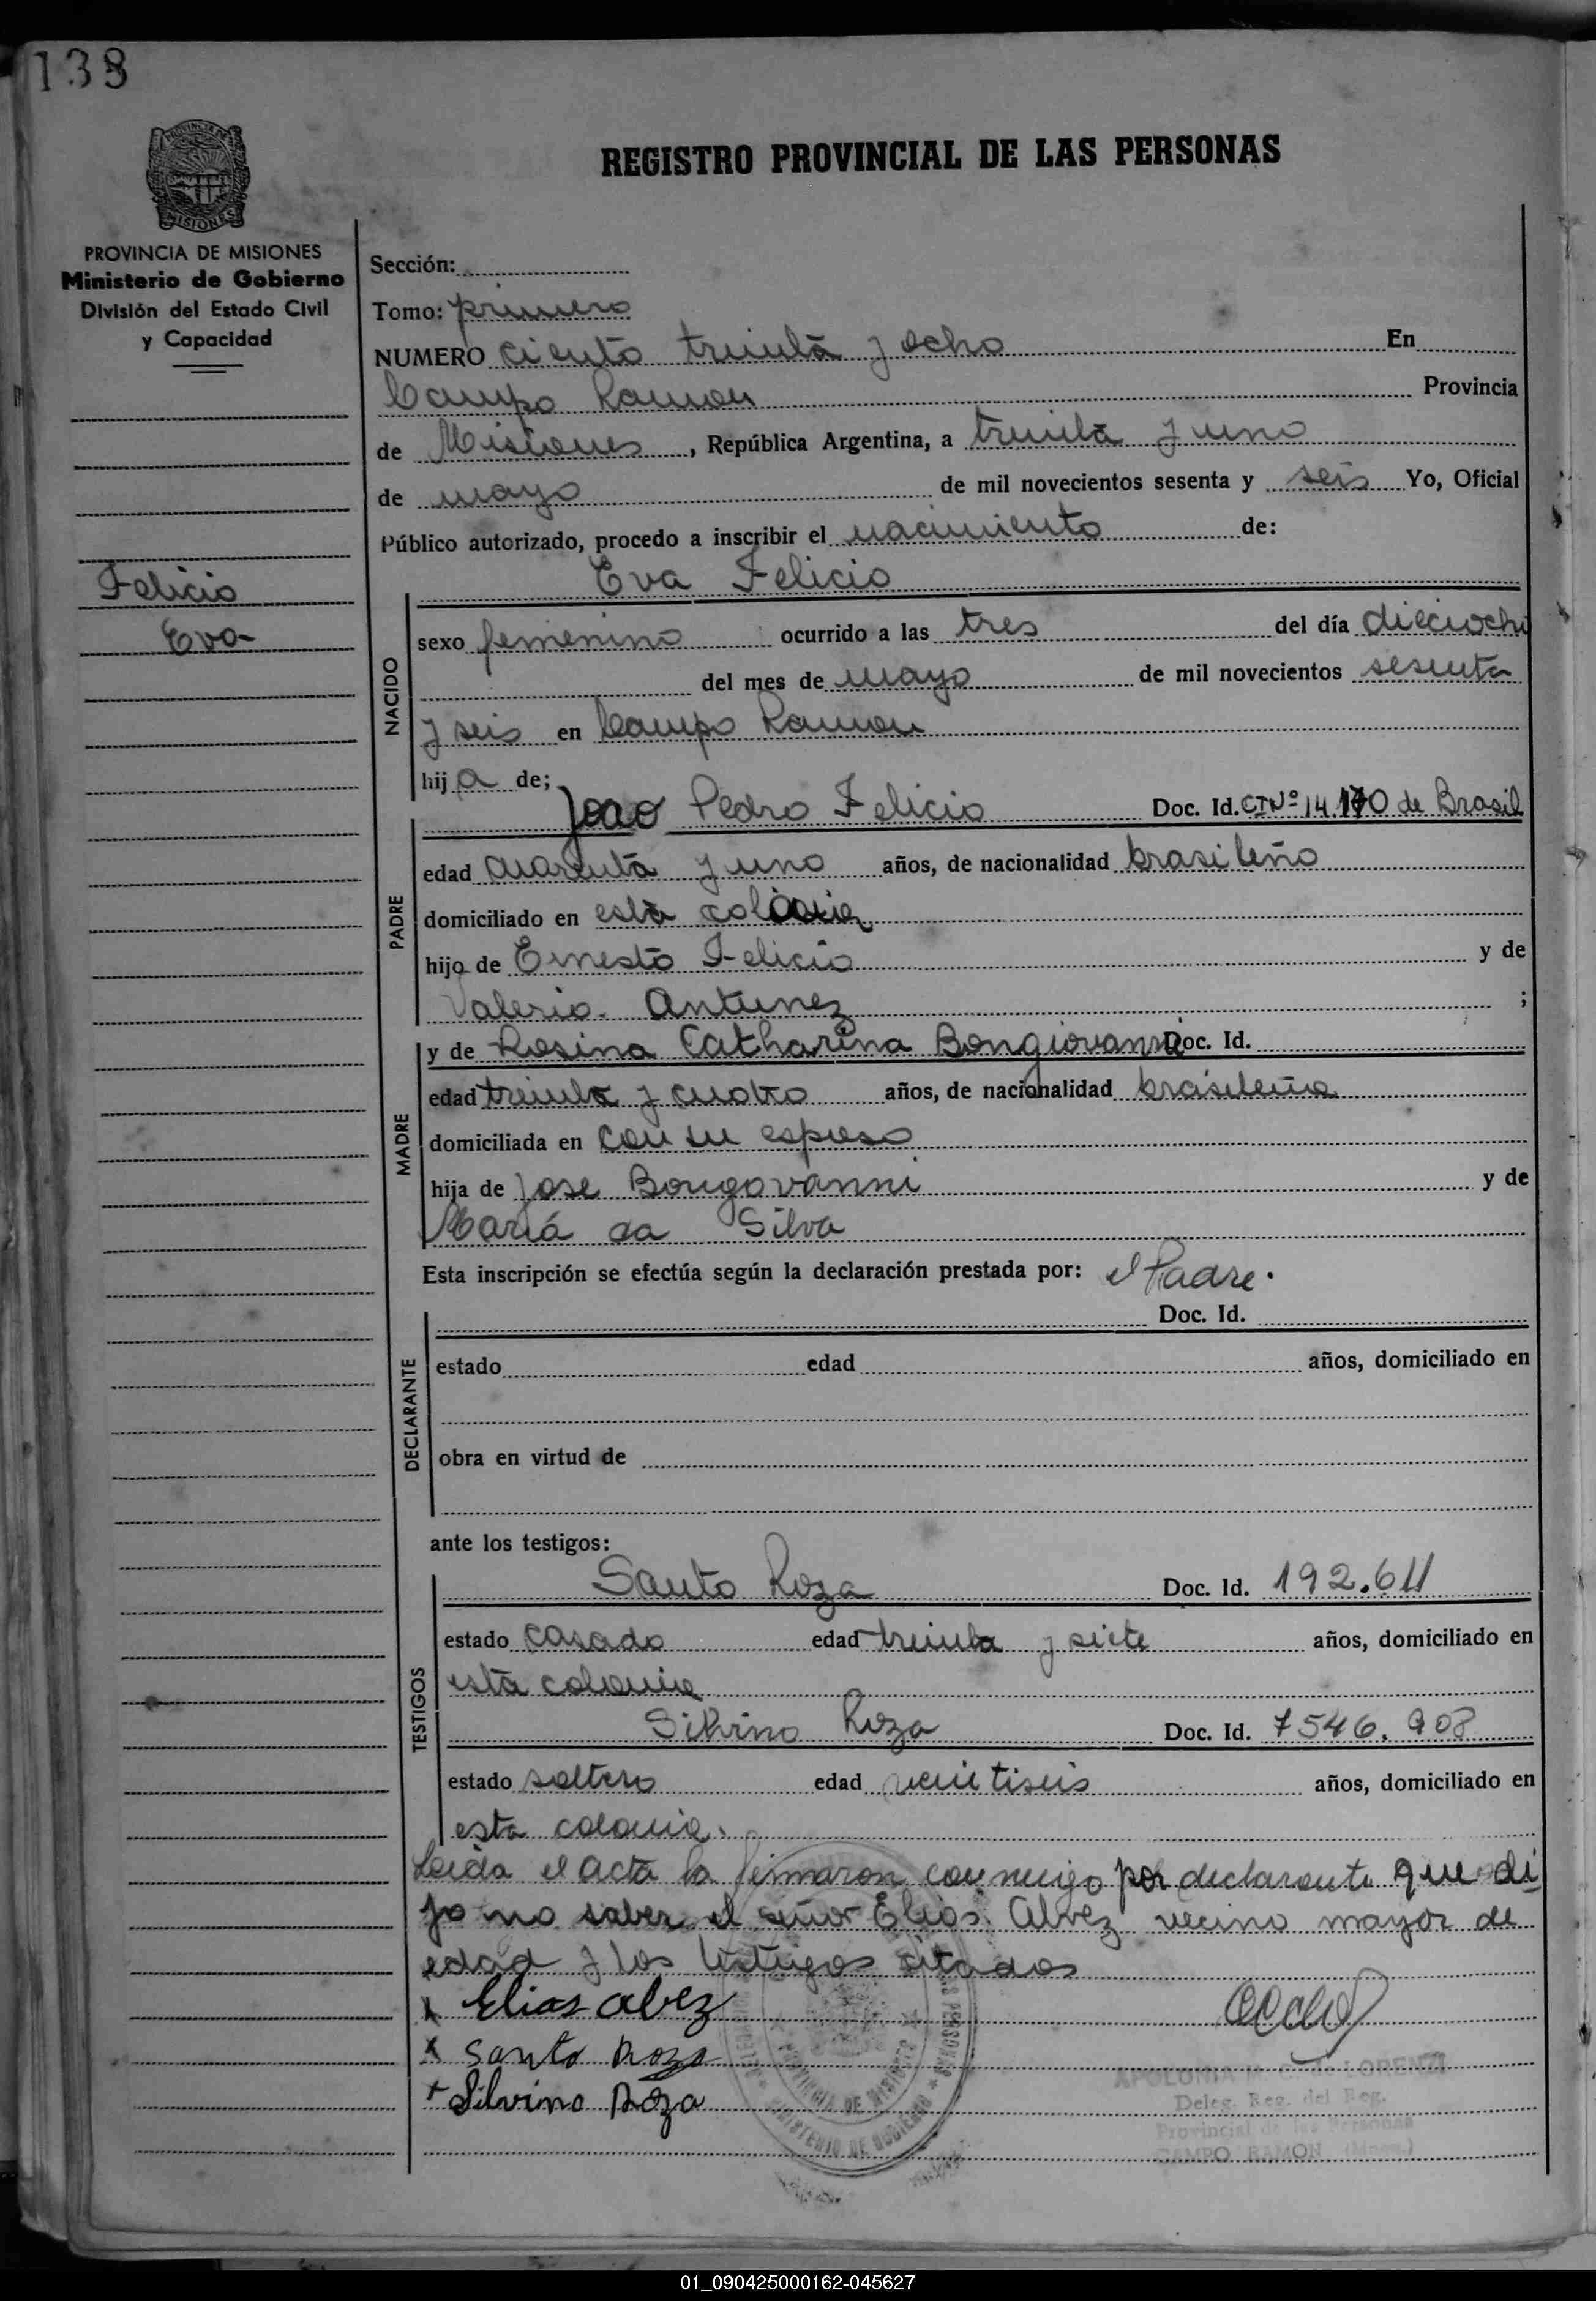 138
REGISTRO PROVINCIAL DE LAS PERSONAS
PROVINCIA DE
MISIONES
PROVINCIA DE MISIONES
Ministerio de Gobierno
División del Estado Civil
y Capacidad
Felicio
Eva
Sección:
Tomo: primero
NUMERO ciento treinta y ocho En
Campo Ramon Provincia
de Misiones, República Argentina, a treinta y uno
de mayo de mil novecientos sesenta y seis Yo, Oficial
Público autorizado, procedo a inscribir el nacimiento de:
Eva Felicio
NACIDO
sexo femenino ocurrido a las tres del día dieciocho
del mes de mayo de mil novecientos sesenta
y seis en Campo Ramon
hija de;
PADRE
Joao Pedro Felicio Doc. Id. CINº 14.170 de Brasil
edad cuarenta y uno años, de nacionalidad brasileño
domiciliado en esta colonia
hijo de Ernesto Felicio y de
Valerio Antunez ;
MADRE
y de Rosina Catharina Bongiovanni Doc. Id.
edad treinta y cuatro años, de nacionalidad brasileña
domiciliada en con su esposo
hija de Jose Bongovanni y de
María da Silva
Esta inscripción se efectúa según la declaración prestada por: el Padre.
DECLARANTE
Doc. Id.
estado edad años, domiciliado en
obra en virtud de
ante los testigos:
TESTIGOS
Santo Roza Doc. Id. 192.611
estado casado edad treinta y siete años, domiciliado en
esta colonia
Silvino Roza Doc. Id. 7546.908
estado soltero edad veintiseis años, domiciliado en
esta colonia.
Leida el acta la firmaron conmigo por declarante que di
jo no saber el señor Elias Alvez vecino mayor de
edad y los testigos citados
x Elias alvez
x Santo Roza
+ Silvino Roza
PROVINCIA DE MISIONES
MINISTERIO DE GOBIERNO
APOLONIA M. C. de LORENZI
Deleg. Reg. del Reg.
Provincial de las Personas
CAMPO RAMON (Mnes.)
01_090425000162-045627